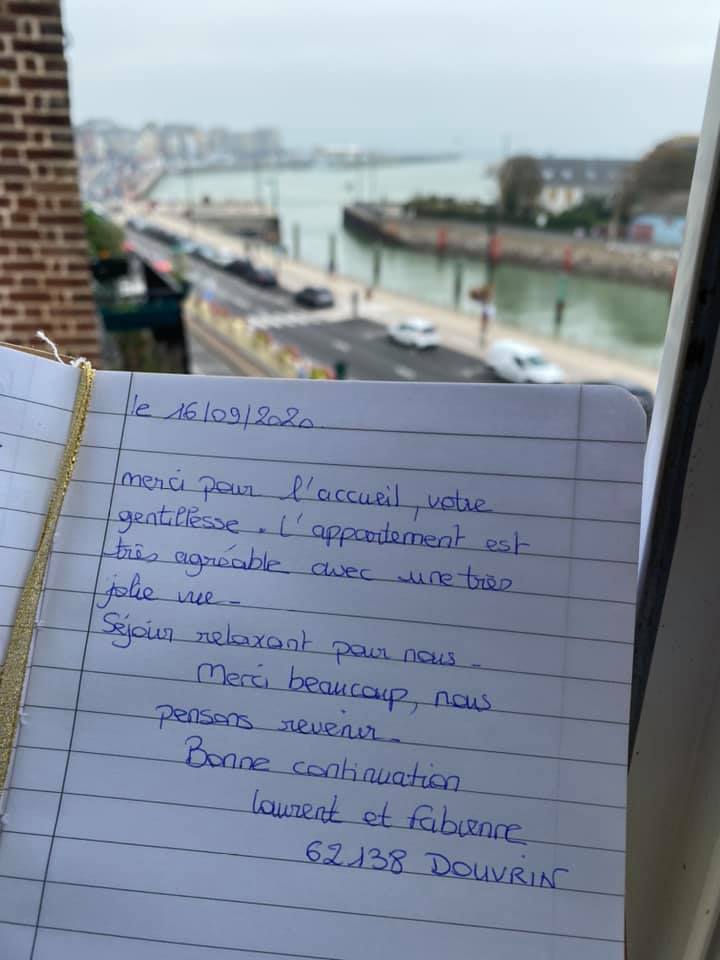 le 16/09/2020
merci pour l'accueil, votre
gentillesse. L'appartement est
très agréable avec une très
jolie vue_
Séjour relaxant pour nous_
Merci beaucoup, nous
pensons revenir_
Bonne continuation
Laurent et Fabienne
62138 DOUVRIN